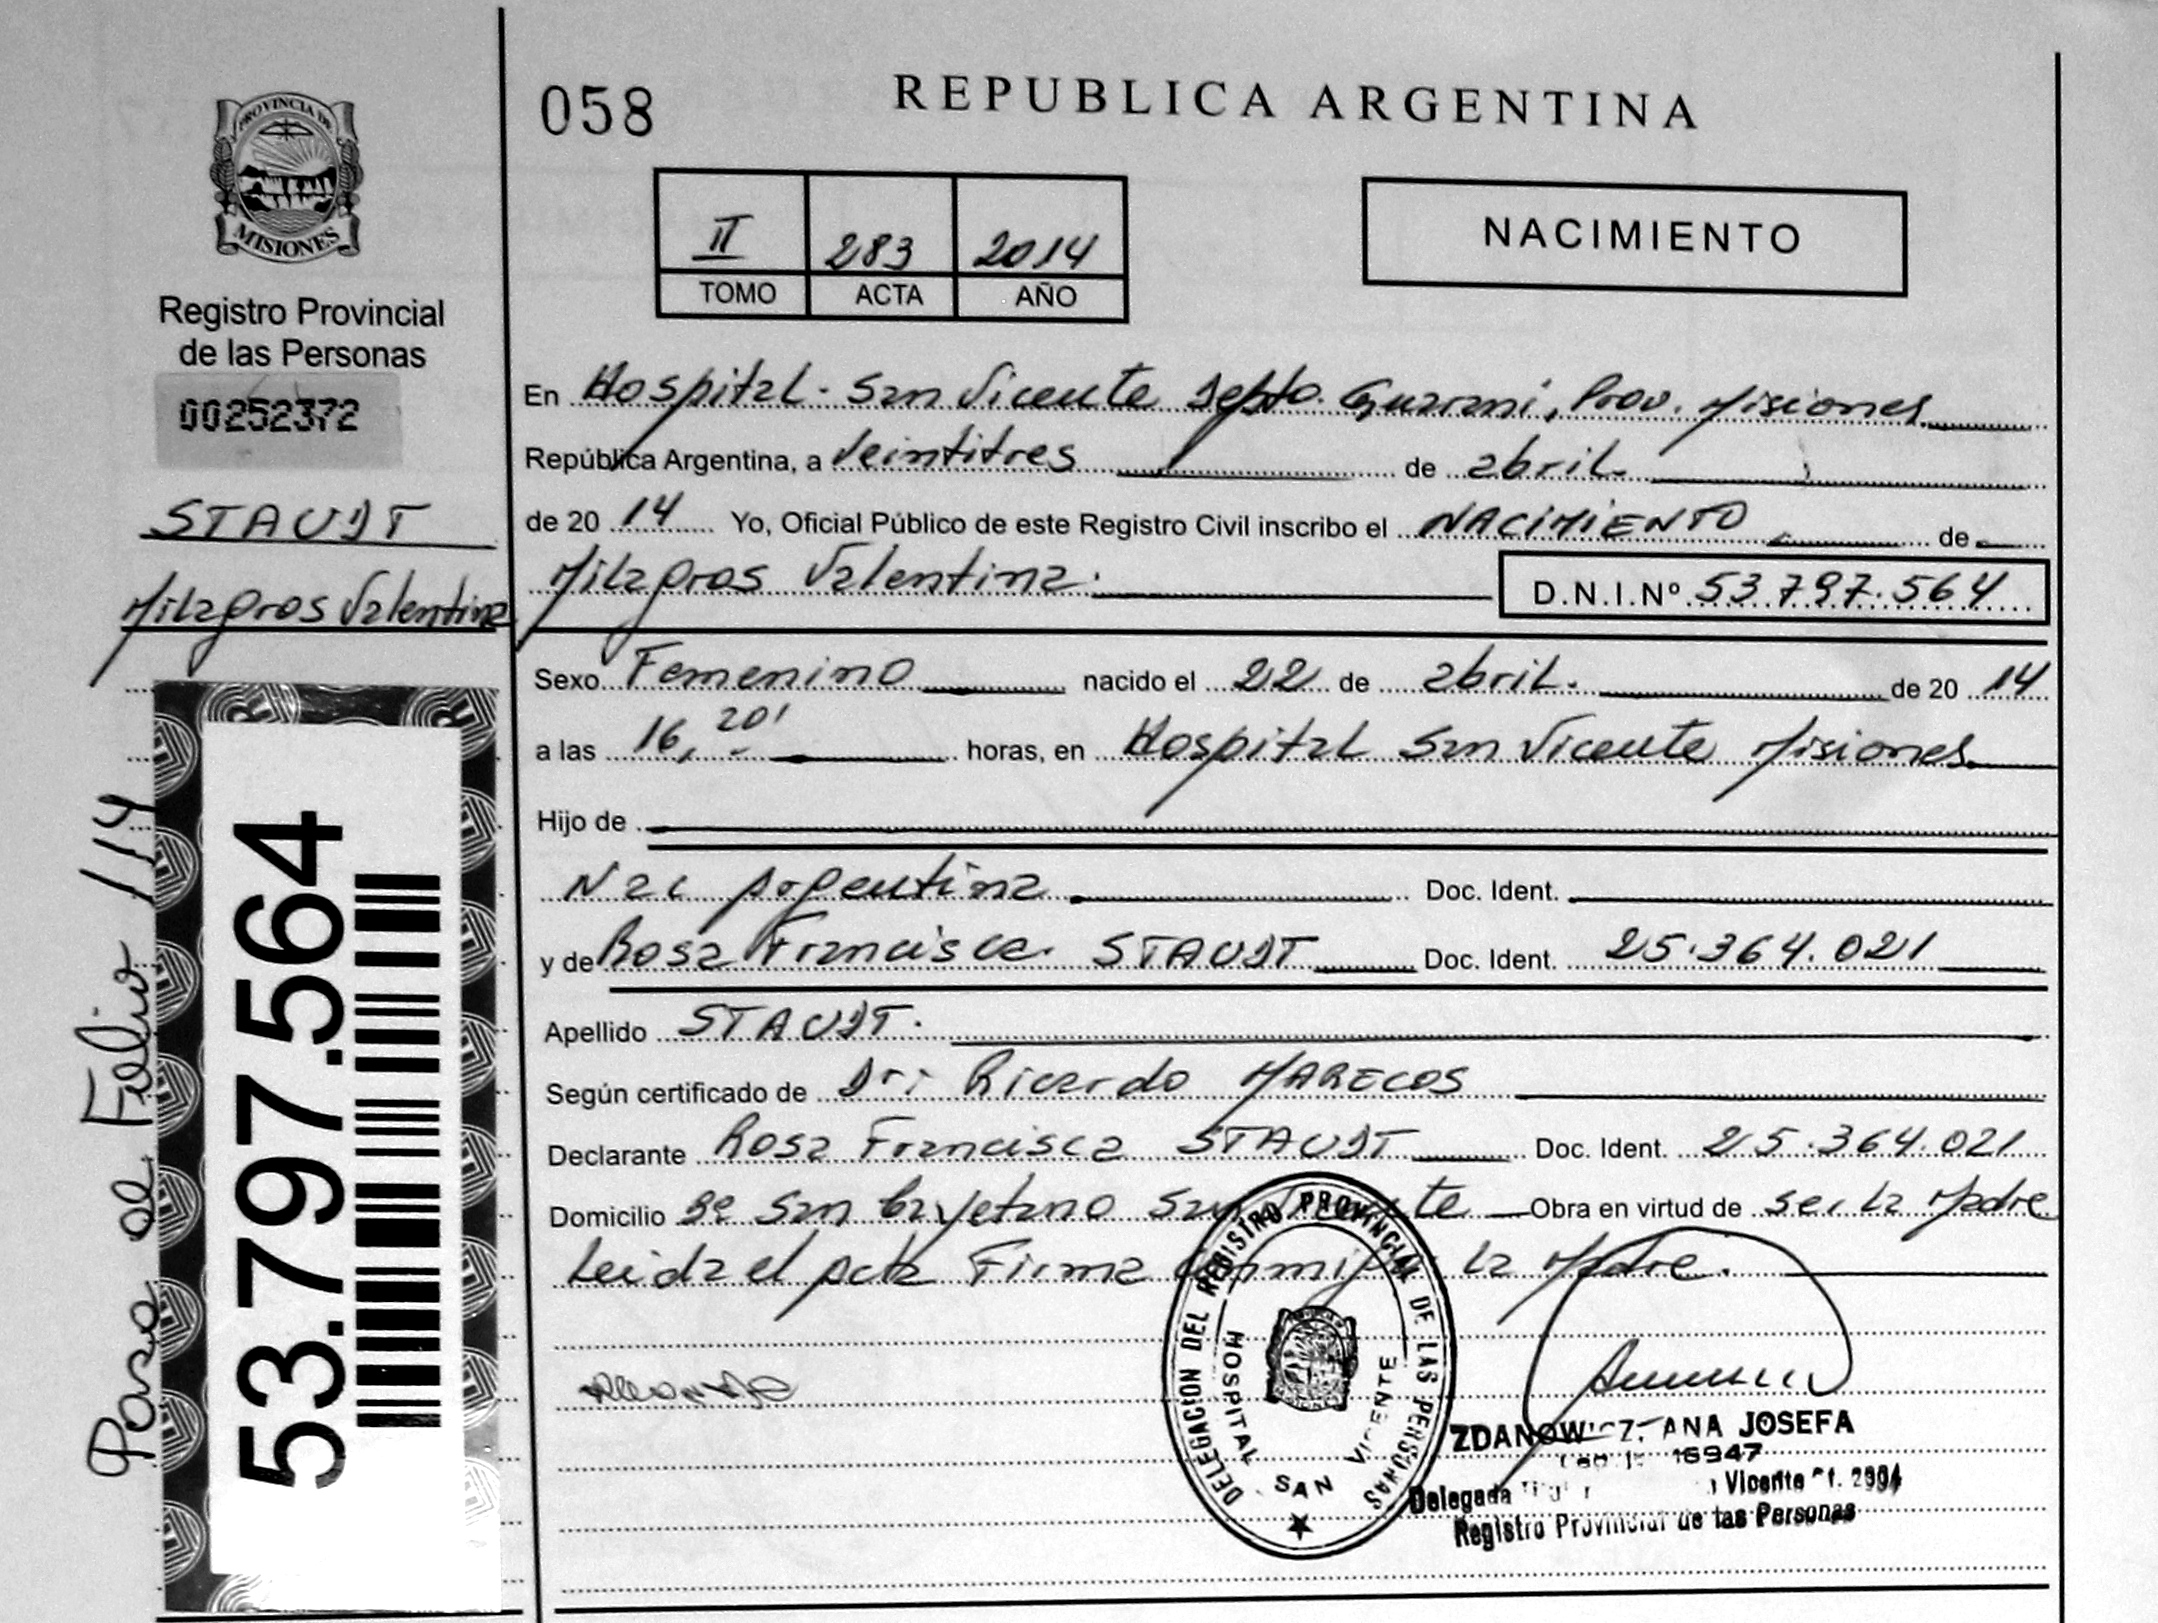 PROVINCIA DE
MISIONES
Registro Provincial
de las Personas
00252372
STAUDT
Milagros Valentina
Pasa al Folio 114
53.797.564
058
REPUBLICA ARGENTINA
II 283 2014
TOMO ACTA AÑO
NACIMIENTO
En Hospital - San Vicente Depto. Guarani, Prov. Misiones
República Argentina, a Veintitres de abril.
de 20 14 Yo, Oficial Público de este Registro Civil inscribo el NACIMIENTO de
Milagros Valentina. D.N.I.Nº 53.797.564
Sexo Femenino nacido el 22 de abril. de 20 14
a las 16,20' horas, en Hospital San Vicente Misiones
Hijo de
Nac Argentina Doc. Ident.
y de Rosa Francisca STAUDT Doc. Ident. 25.364.021
Apellido STAUDT.
Según certificado de Dr: Ricardo MARECOS
Declarante Rosa Francisca STAUDT Doc. Ident. 25.364.021
Domicilio Bº San Cayetano San Vicente Obra en virtud de ser la Madre
Leida el Acta Firma Conmigo la Madre.
DELEGACION DEL REGISTRO PROVINCIAL DE LAS PERSONAS
HOSPITAL SAN VICENTE
ZDANOWICZ, ANA JOSEFA
16947
Delegada Vicente Of. 2904
Registro Provincial de las Personas